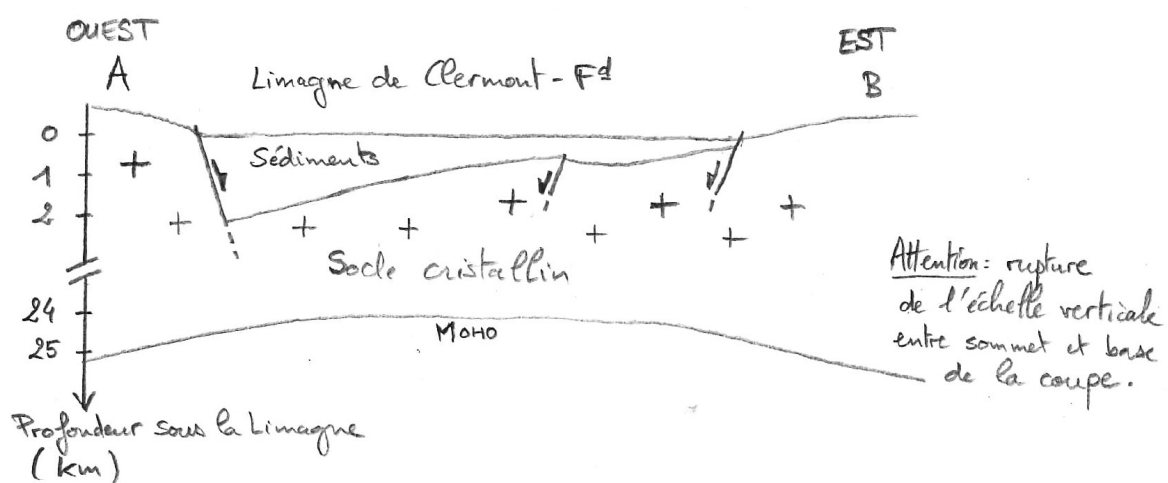 OUEST
A
Limagne de Clermont-Fd
EST
B
0
Sédiments
1
2
Socle cristallin
24
25
MOHO
Attention: rupture
de l'échelle verticale
entre sommet et base
de la coupe.
Profondeur sous la Limagne
(km)